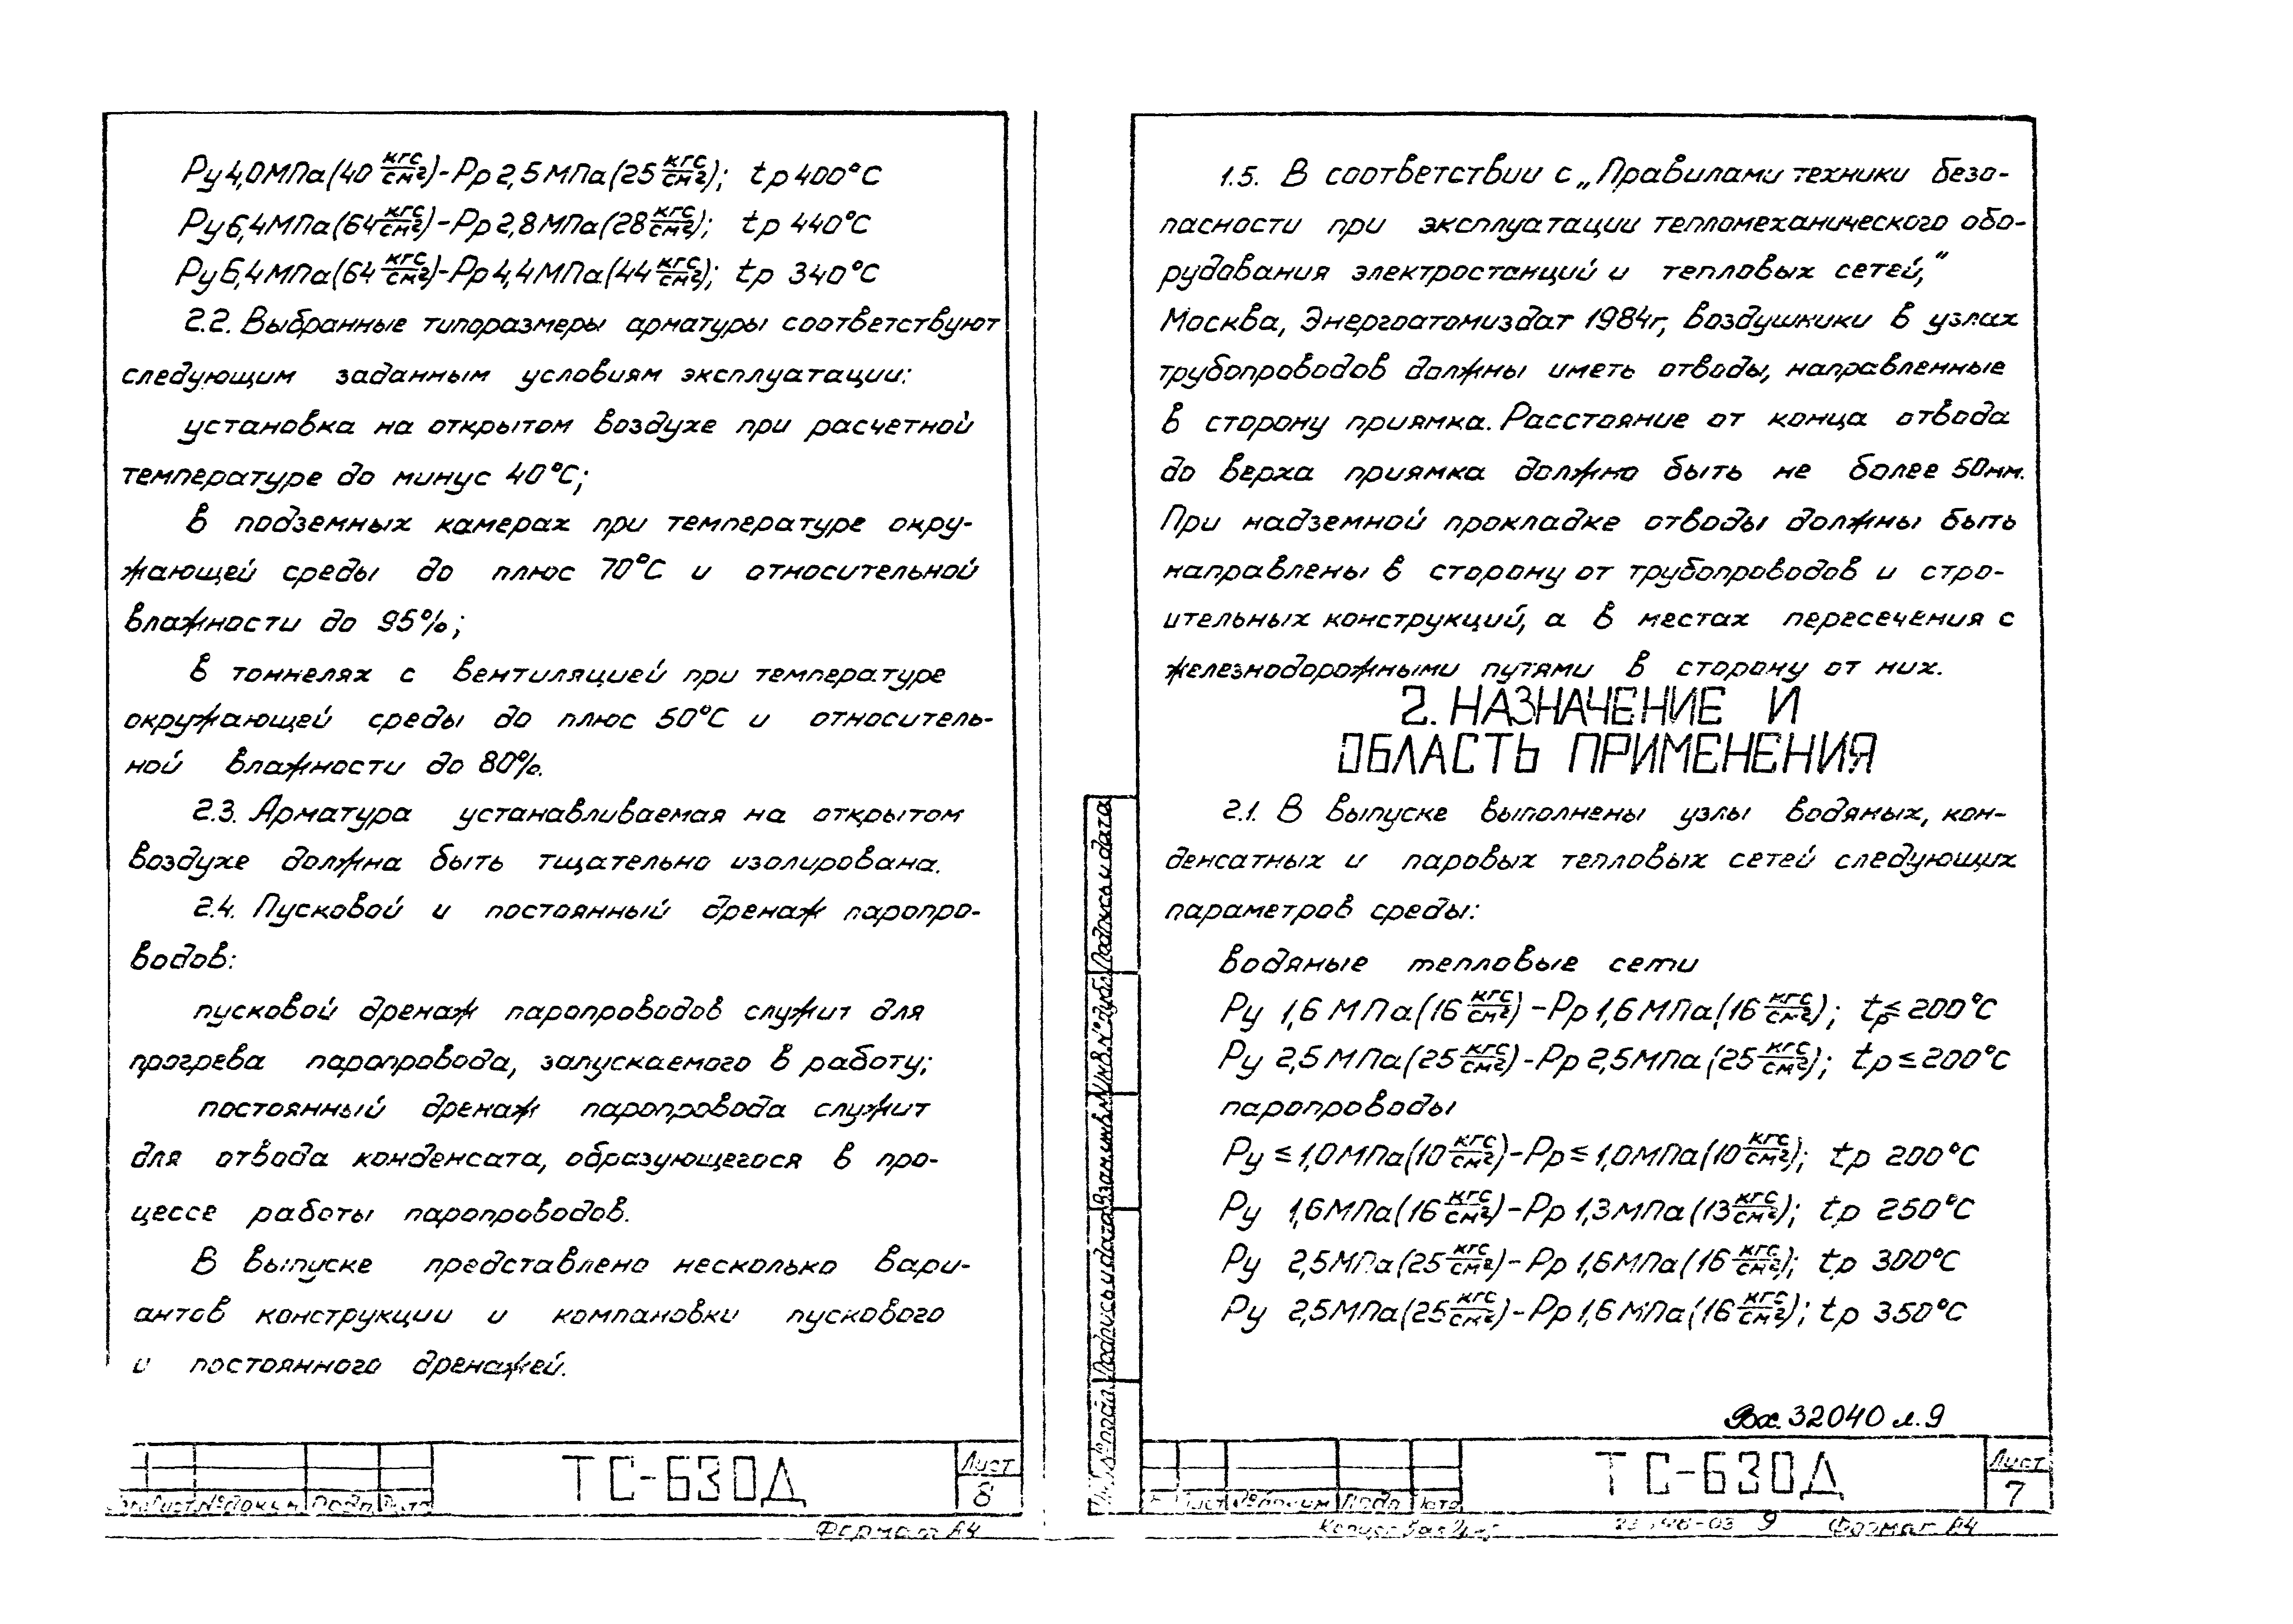 Ру 4,0 МПа (40 кгс/см²) - Рр 2,5 МПа (25 кгс/см²); tр 400°С
Ру 6,4 МПа (64 кгс/см²) - Рр 2,8 МПа (28 кгс/см²); tр 440°С
Ру 6,4 МПа (64 кгс/см²) - Рр 4,4 МПа (44 кгс/см²); tр 340°С
2.2. Выбранные типоразмеры арматуры соответствуют
следующим заданным условиям эксплуатации:
установка на открытом воздухе при расчетной
температуре до минус 40°С;
в подземных камерах при температуре окру-
жающей среды до плюс 70°С и относительной
влажности до 95%;
в тоннелях с вентиляцией при температуре
окружающей среды до плюс 50°С и относитель-
ной влажности до 80%.
2.3. Арматура устанавливаемая на открытом
воздухе должна быть тщательно изолирована.
2.4. Пусковой и постоянный дренаж паропро-
водов:
пусковой дренаж паропроводов служит для
прогрева паропровода, запускаемого в работу;
постоянный дренаж паропровода служит
для отвода конденсата, образующегося в про-
цессе работы паропроводов.
В выпуске представлено несколько вари-
антов конструкции и компановки пускового
и постоянного дренажей.
ТС-630Д
Лист
8
Лист № докум Подп. Дата
Формат А4
1.5. В соответствии с „Правилами техники безо-
пасности при эксплуатации тепломеханического обо-
рудования электростанций и тепловых сетей,"
Москва, Энергоатомиздат 1984г, воздушники в узлах
трубопроводов должны иметь отводы, направленные
в сторону приямка. Расстояние от конца отвода
до верха приямка должно быть не более 50мм.
При надземной прокладке отводы должны быть
направлены в сторону от трубопроводов и стро-
ительных конструкций, а в местах пересечения с
железнодорожными путями в сторону от них.
2. НАЗНАЧЕНИЕ И
ОБЛАСТЬ ПРИМЕНЕНИЯ
2.1. В выпуске выполнены узлы водяных, кон-
денсатных и паровых тепловых сетей следующих
параметров среды:
водяные тепловые сети
Ру 1,6 МПа (16 кгс/см²) - Рр 1,6 МПа (16 кгс/см²); tр ≤ 200°С
Ру 2,5 МПа (25 кгс/см²) - Рр 2,5 МПа (25 кгс/см²); tр ≤ 200°С
паропроводы
Ру ≤ 1,0 МПа (10 кгс/см²) - Рр ≤ 1,0 МПа (10 кгс/см²); tр 200°С
Ру 1,6 МПа (16 кгс/см²) - Рр 1,3 МПа (13 кгс/см²); tр 250°С
Ру 2,5 МПа (25 кгс/см²) - Рр 1,6 МПа (16 кгс/см²); tр 300°С
Ру 2,5 МПа (25 кгс/см²) - Рр 1,6 МПа (16 кгс/см²); tр 350°С
Вх. 32040 л. 9
Подпись и дата
Инв.№ дубл
Взам.инв.№
Подпись и дата
подл.
ТС-630Д
Лист
7
Лист № докум Подп Дата
9
Формат А4